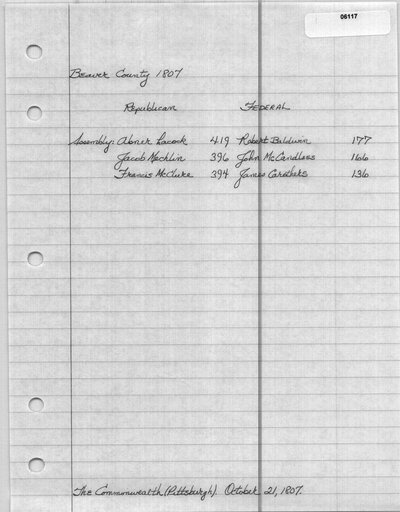 06117
Beaver County 1807
Republican Federal
Assembly: Abner Lacock 419 Robert Baldwin 177
Jacob Mechlin 396 John McCandless 166
Francis McClure 394 James Carothers 136
The Commonwealth (Pittsburgh). October 21, 1807.